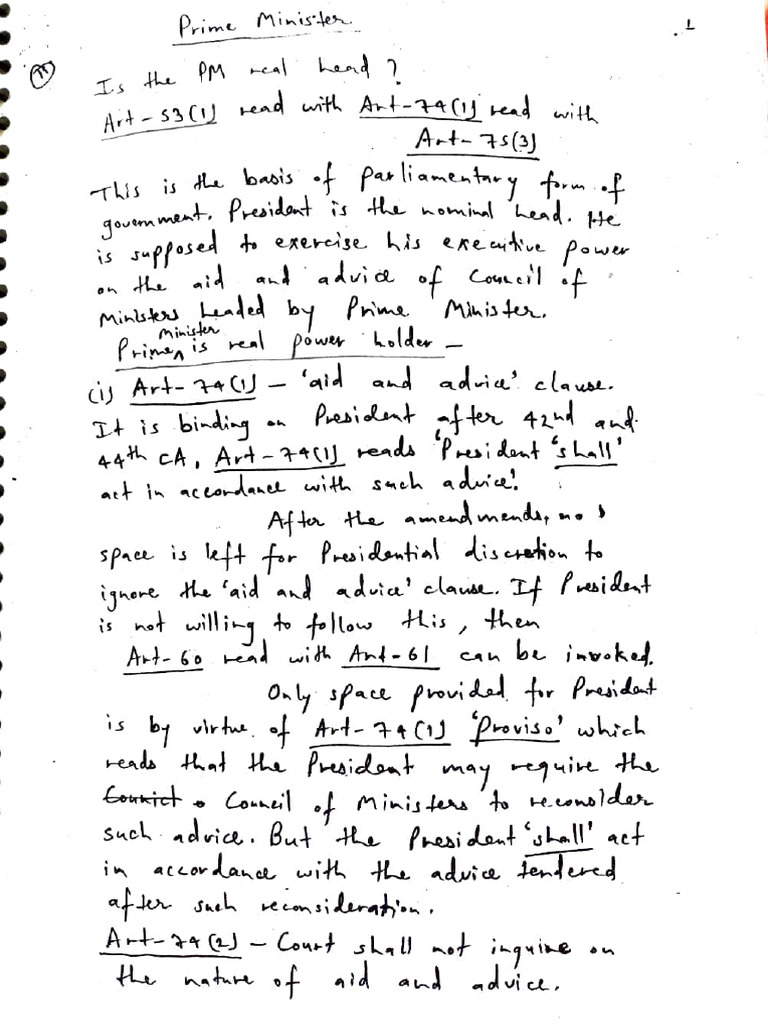 Prime Minister
1
Is the PM real head?
Art-53(1) read with Art-74(1) read with
Art-75(3)
This is the basis of parliamentary form of
government. President is the nominal head. He
is supposed to exercise his executive power
on the aid and advice of Council of
Ministers headed by Prime Minister.
Prime Minister is real power holder -
(i) Art-74(1) - 'aid and advice' clause.
It is binding on President after 42nd and
44th CA, Art-74(1) reads 'President 'shall'
act in accordance with such advice'.
After the amendmends, no
space is left for Presidential discretion to
ignore the 'aid and advice' clause. If President
is not willing to follow this, then
Art-60 read with Art-61 can be invoked.
Only space provided for President
is by virtue of Art-74(1) 'Proviso' which
reads that the President may require the
Council of Ministers to reconsider
such advice. But the President 'shall' act
in accordance with the advice tendered
after such reconsideration.
Art-74(2) - Court shall not inquire on
the nature of aid and advice.